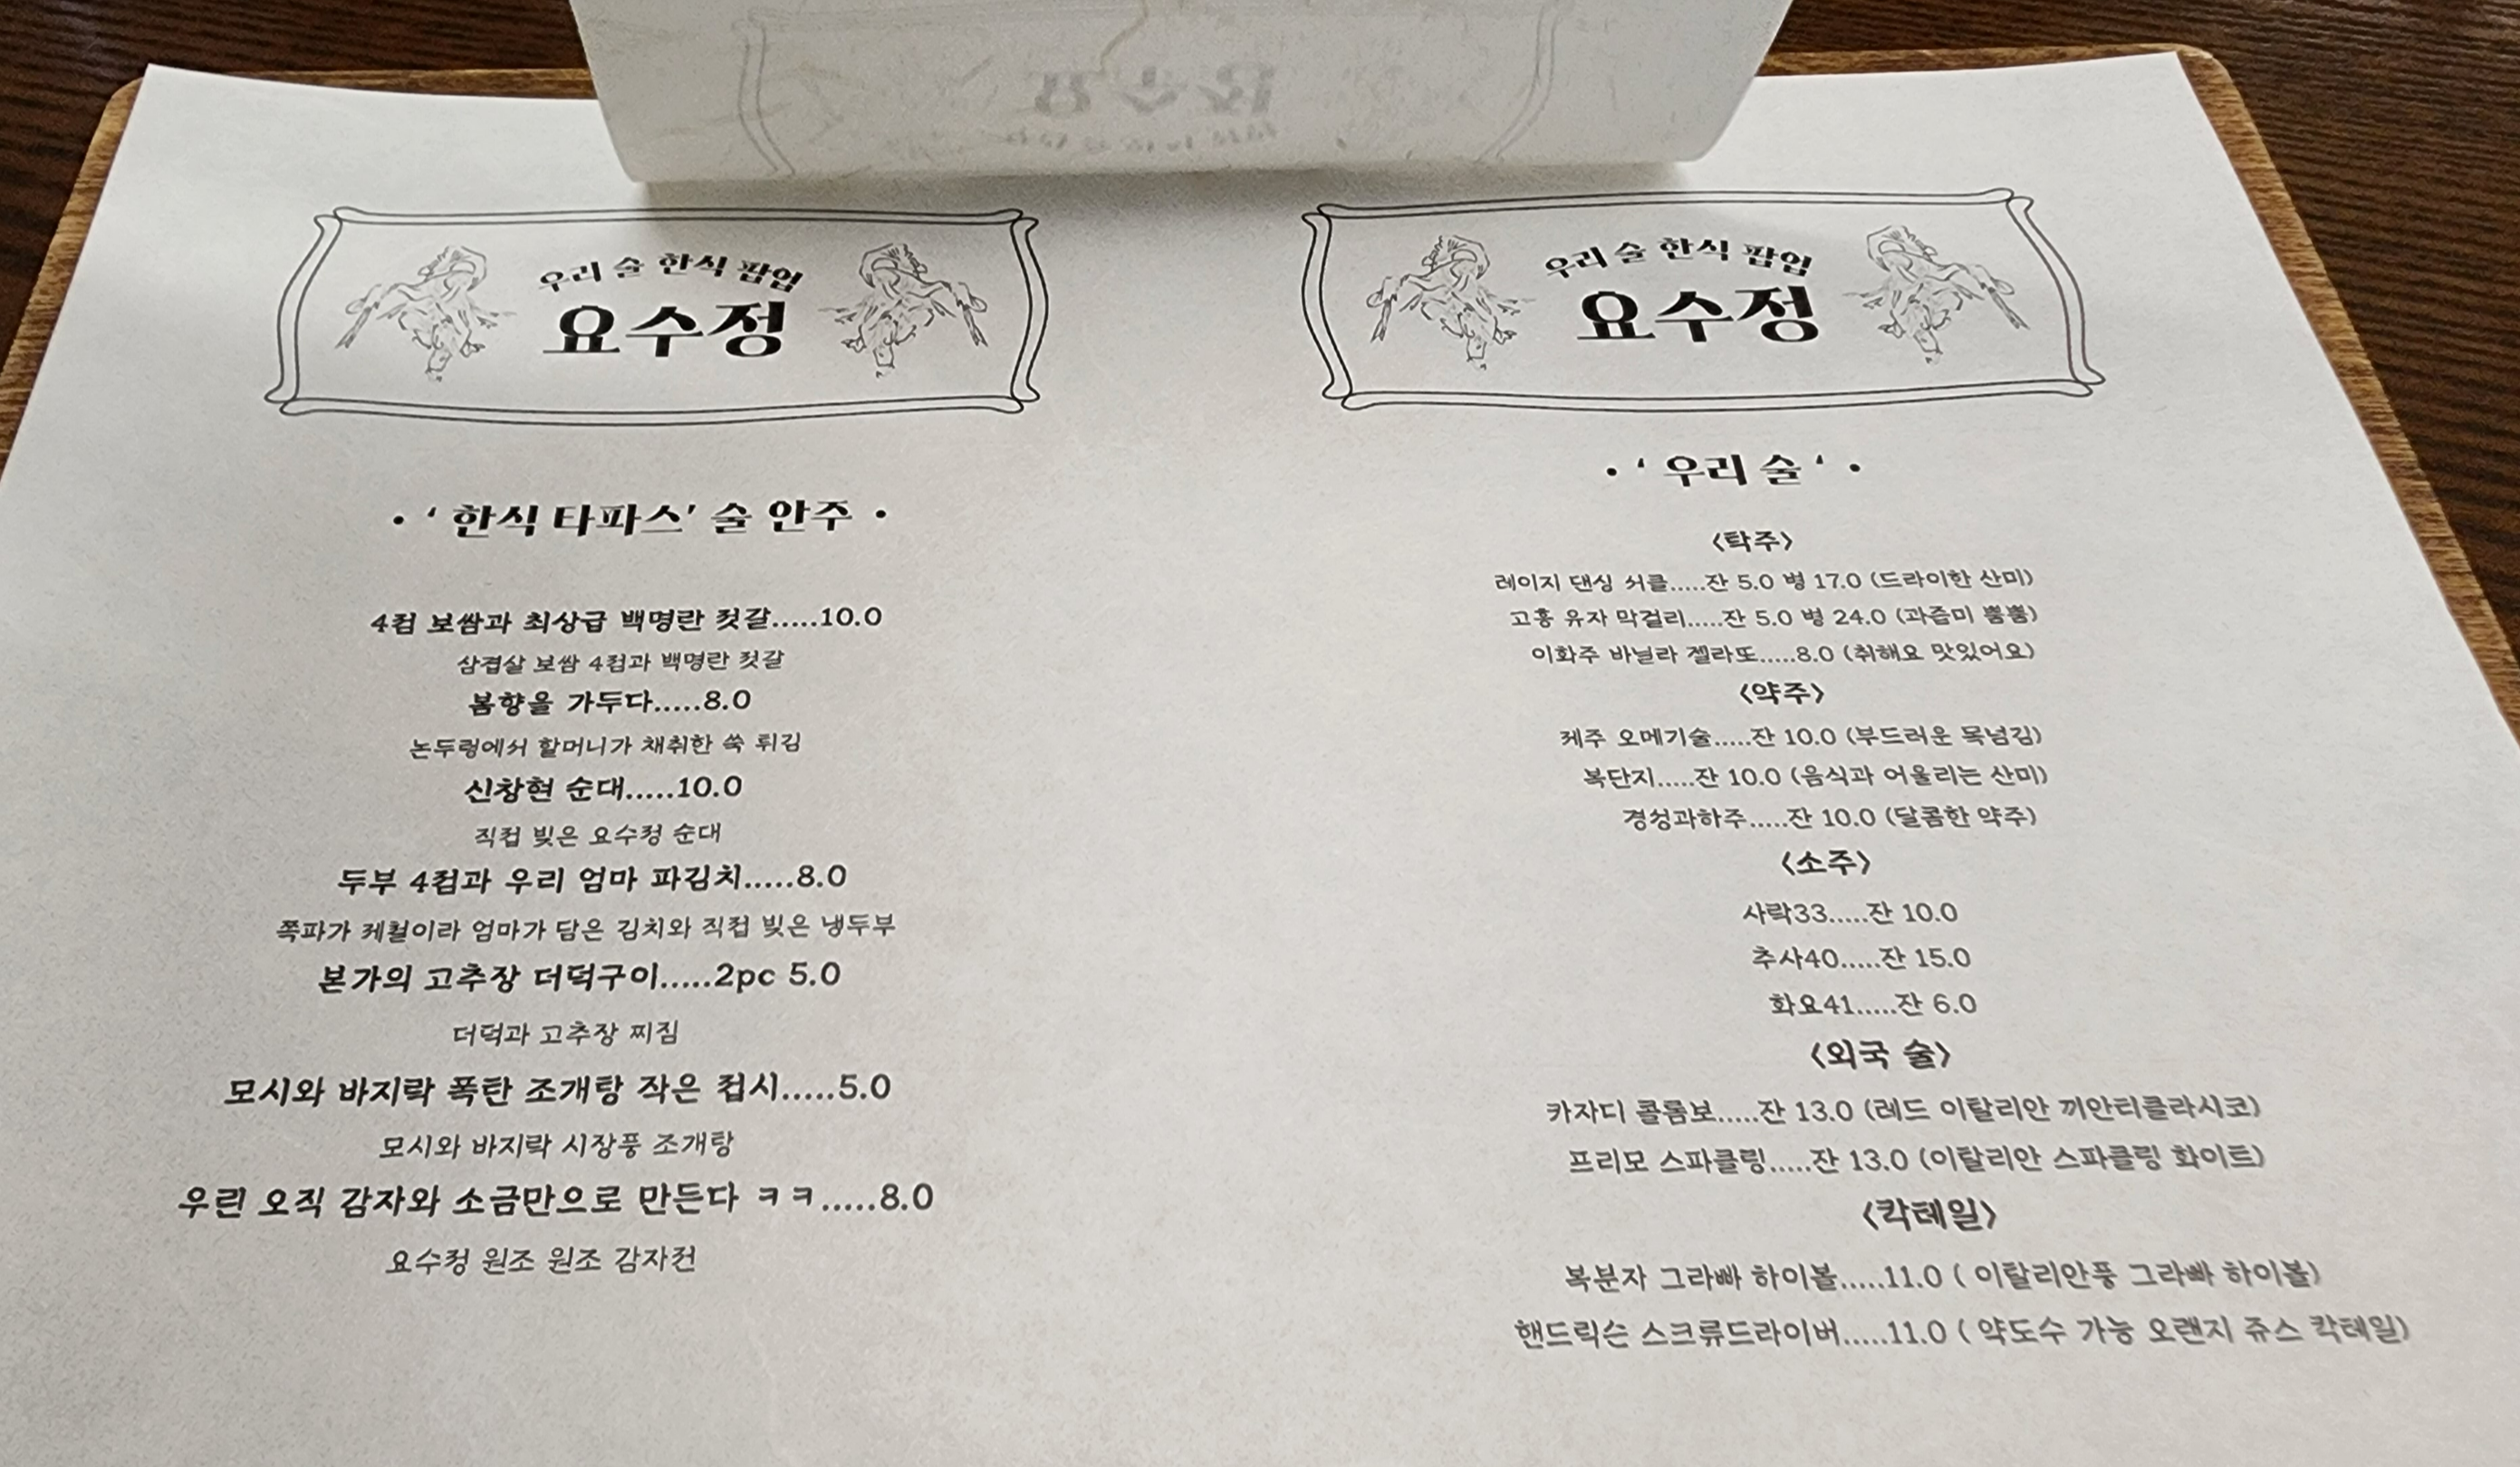 우리 술 한식 팝업
요수정
• ‘ 한식 타파스’ 술 안주 •
4점 보쌈과 최상급 백명란 젓갈.....10.0
삼겹살 보쌈 4점과 백명란 젓갈
봄향을 가두다.....8.0
논두렁에서 할머니가 채취한 쑥 튀김
신창현 순대.....10.0
직접 빚은 요수정 순대
두부 4점과 우리 엄마 파김치.....8.0
쪽파가 제철이라 엄마가 담은 김치와 직접 빚은 냉두부
본가의 고추장 더덕구이.....2pc 5.0
더덕과 고추장 찌짐
모시와 바지락 폭탄 조개탕 작은 접시.....5.0
모시와 바지락 시장풍 조개탕
우린 오직 감자와 소금만으로 만든다 ㅋㅋ.....8.0
요수정 원조 원조 감자전
우리 술 한식 팝업
요수정
• ‘ 우리 술 ‘ •
<탁주>
레이지 댄싱 서클.....잔 5.0 병 17.0 (드라이한 산미)
고흥 유자 막걸리.....잔 5.0 병 24.0 (과즙미 뿜뿜)
이화주 바닐라 젤라또.....8.0 (취해요 맛있어요)
<약주>
제주 오메기술.....잔 10.0 (부드러운 목넘김)
복단지.....잔 10.0 (음식과 어울리는 산미)
경성과하주.....잔 10.0 (달콤한 약주)
<소주>
사락33.....잔 10.0
추사40.....잔 15.0
화요41.....잔 6.0
<외국 술>
카자디 콜롬보.....잔 13.0 (레드 이탈리안 끼안티클라시코)
프리모 스파클링.....잔 13.0 (이탈리안 스파클링 화이트)
<칵테일>
복분자 그라빠 하이볼.....11.0 ( 이탈리안풍 그라빠 하이볼)
핸드릭슨 스크류드라이버.....11.0 ( 약도수 가능 오랜지 쥬스 칵테일)